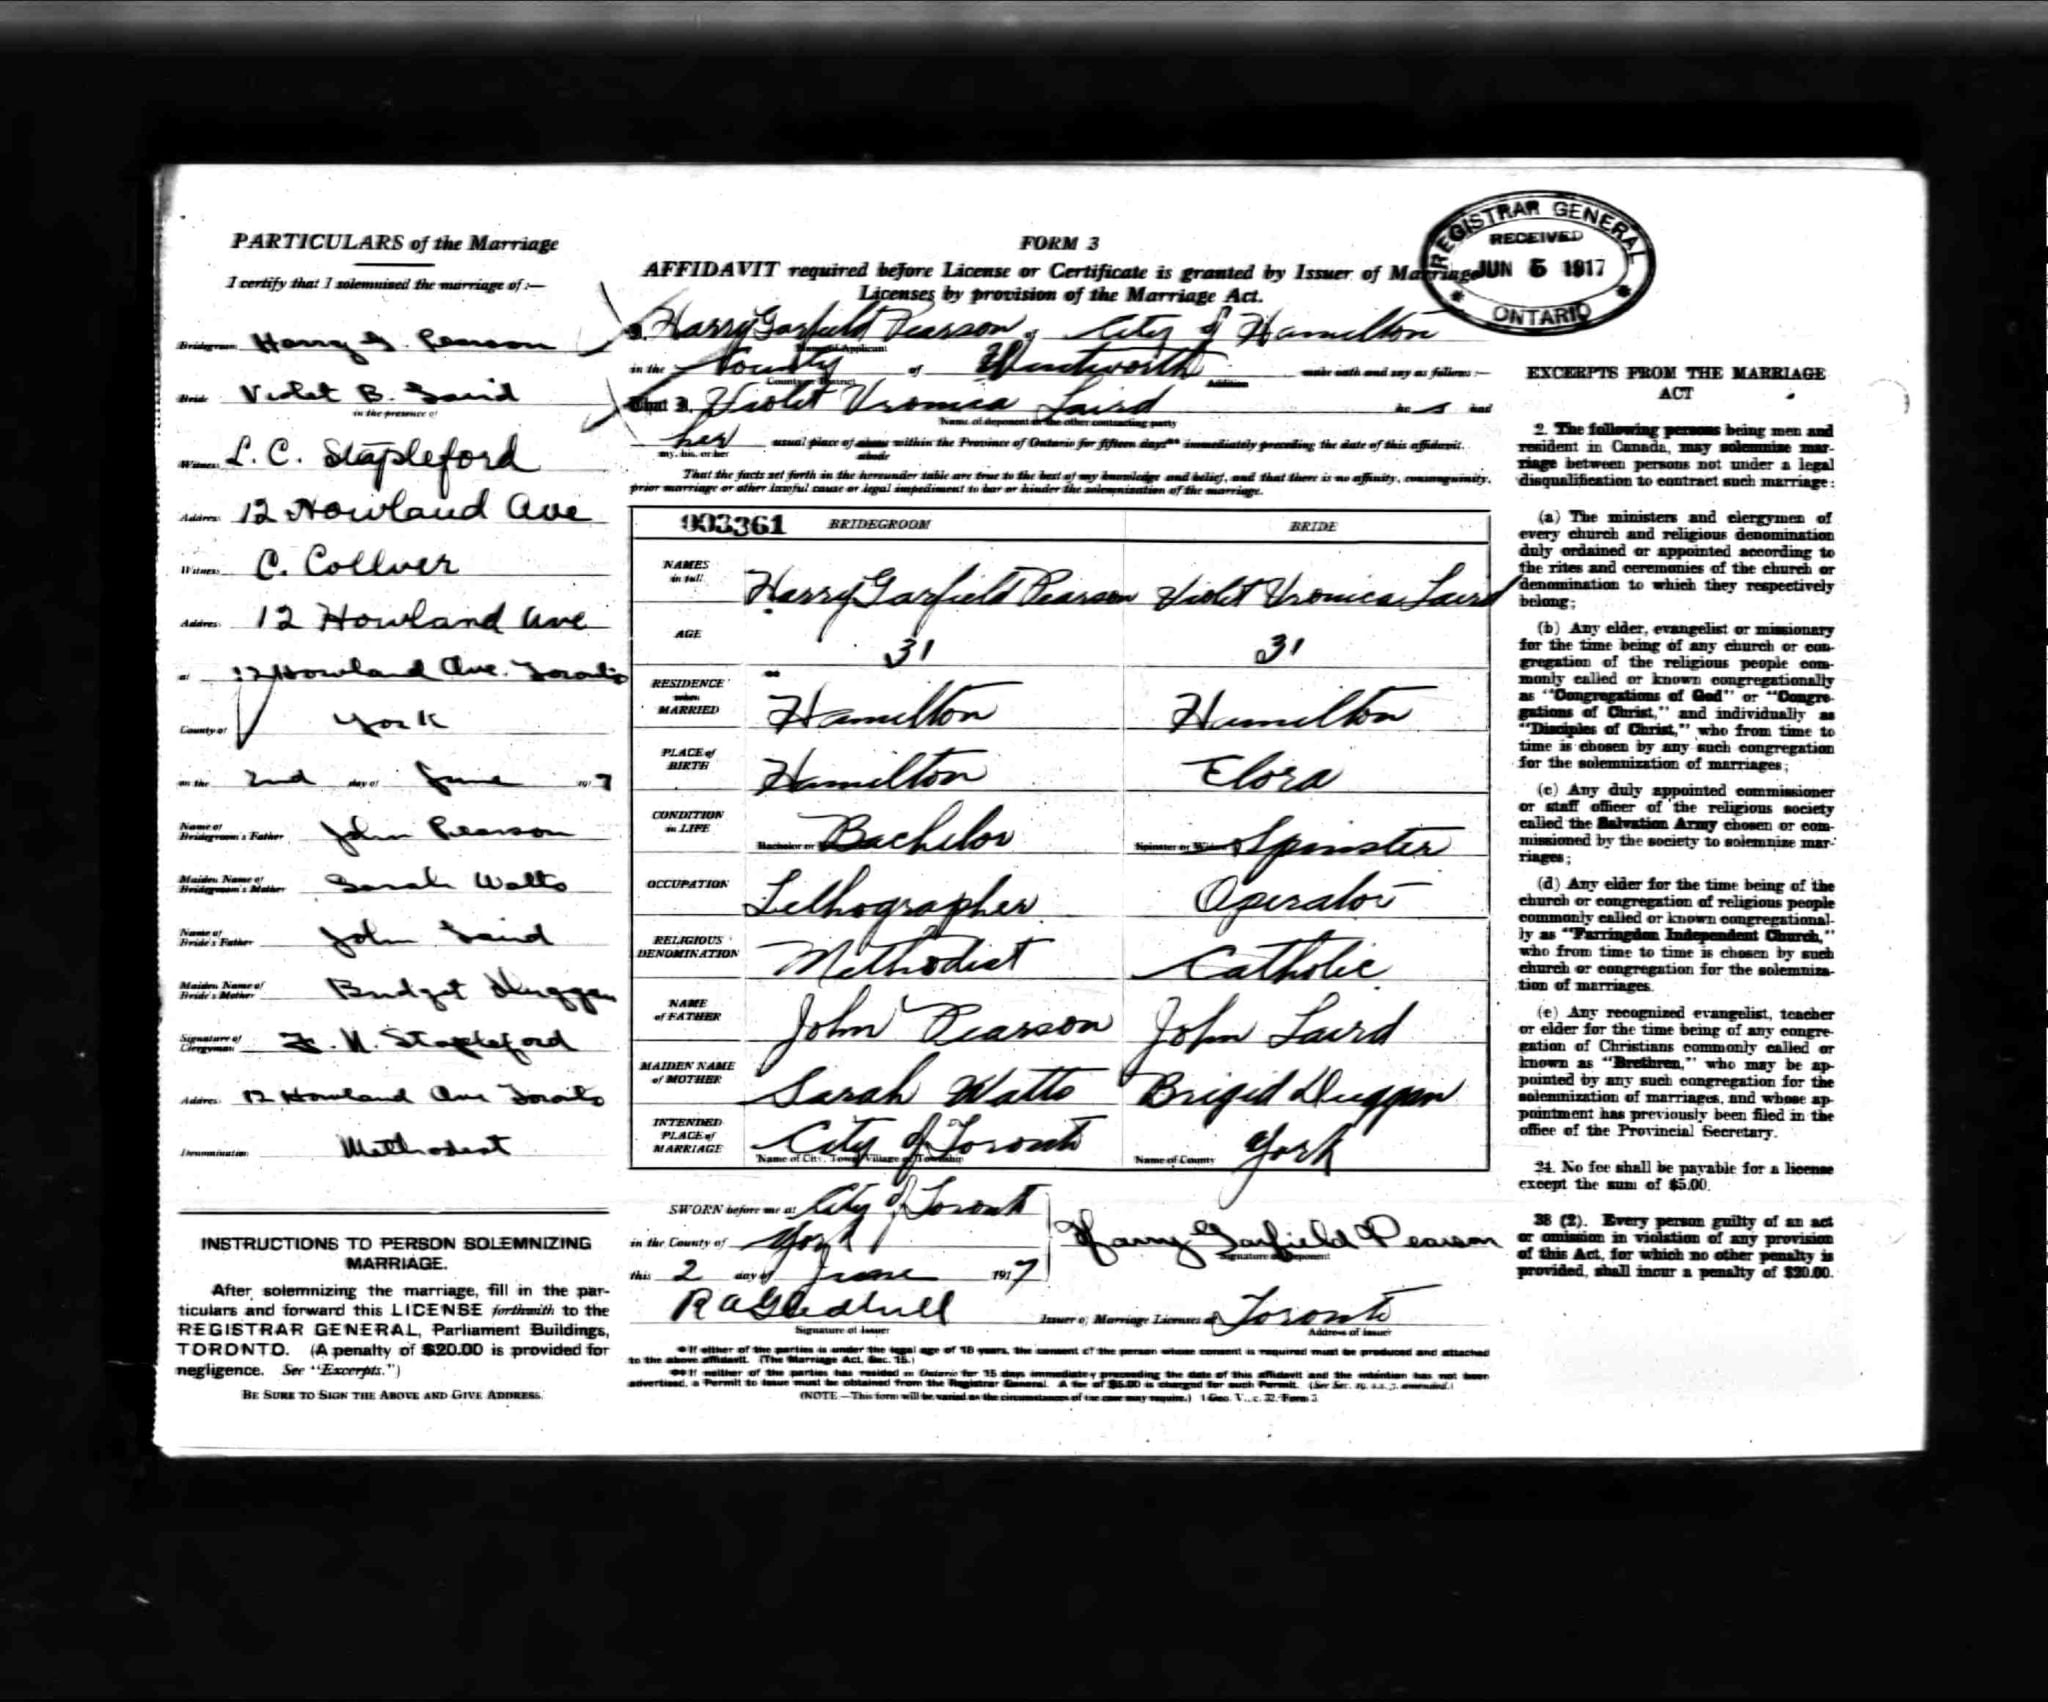 PARTICULARS of the Marriage
I certify that I solemnised the marriage of:—
Bridegroom Harry G. Pearson
Bride Violet B. Laird
in the presence of
Witness L. C. Stapleford
Address 12 Howland Ave
Witness C. Collver
Address 12 Howland Ave
at 12 Howland Ave. Toronto
County of York
on the 2nd day of June 1917
Name of Bridegroom's Father John Pearson
Maiden Name of Bridegroom's Mother Sarah Watts
Name of Bride's Father John Laird
Maiden Name of Bride's Mother Bridget Duggan
Signature of Clergyman F. N. Stapleford
Address 12 Howland Ave Toronto
Denomination Methodist
INSTRUCTIONS TO PERSON SOLEMNIZING
MARRIAGE.
After solemnizing the marriage, fill in the par-
ticulars and forward this LICENSE forthwith to the
REGISTRAR GENERAL, Parliament Buildings,
TORONTO. (A penalty of $20.00 is provided for
negligence. See "Excerpts.")
BE SURE TO SIGN THE ABOVE AND GIVE ADDRESS.
FORM 3
AFFIDAVIT required before License or Certificate is granted by Issuer of Marriage
Licenses by provision of the Marriage Act.
I, Harry Garfield Pearson, of City of Hamilton
Name of Applicant
in the County of Wentworth make oath and say as follows:—
County or District Addition
That Violet Vronica Laird he s had
Name of deponent or the other contracting party
her usual place of abode within the Province of Ontario for fifteen days** immediately preceding the date of this affidavit.
my, his, or her abode
That the facts set forth in the hereunder table are true to the best of my knowledge and belief, and that there is no affinity, consanguinity,
prior marriage or other lawful cause or legal impediment to bar or hinder the solemnization of the marriage.
003361 BRIDEGROOM BRIDE
NAMES in full Harry Garfield Pearson Violet Vronica Laird
AGE 31 31
RESIDENCE when MARRIED Hamilton Hamilton
PLACE of BIRTH Hamilton Elora
CONDITION in LIFE Bachelor or Bachelor Spinster or Widow Spinster
OCCUPATION Lithographer Operator
RELIGIOUS DENOMINATION Methodist Catholic
NAME of FATHER John Pearson John Laird
MAIDEN NAME of MOTHER Sarah Watts Brigid Duggan
INTENDED PLACE of MARRIAGE City of Toronto York
Name of City, Town, Village or Township Name of County
SWORN before me at City of Toronto
in the County of York
Harry Garfield Pearson
Signature of Deponent
this 2 day of June 1917
R A Gledhill Issuer of Marriage Licenses at Toronto
Signature of Issuer Address of Issuer
*If either of the parties is under the legal age of 18 years, the consent of the person whose consent is required must be produced and attached
to the above affidavit. (The Marriage Act, Sec. 15.)
**If neither of the parties has resided in Ontario for 15 days immediately preceding the date of this affidavit and the intention has not been
advertised, a Permit to Issue must be obtained from the Registrar General. A fee of $5.00 is charged for such Permit.
(NOTE.—This form will be varied as the circumstances of the case may require.) 1 Geo. V., c. 32, Form 3
REGISTRAR GENERAL
RECEIVED
JUN 5 1917
ONTARIO
EXCERPTS FROM THE MARRIAGE
ACT
2. The following persons being men and
resident in Canada, may solemnize mar-
riage between persons not under a legal
disqualification to contract such marriage:
(a) The ministers and clergymen of
every church and religious denomination
duly ordained or appointed according to
the rites and ceremonies of the church or
denomination to which they respectively
belong;
(b) Any elder, evangelist or missionary
for the time being of any church or con-
gregation of the religious people com-
monly called or known congregationally
as "Congregations of God" or "Congre-
gations of Christ," and individually as
"Disciples of Christ," who from time to
time is chosen by any such congregation
for the solemnization of marriages;
(c) Any duly appointed commissioner
or staff officer of the religious society
called the Salvation Army chosen or com-
missioned by the society to solemnize mar-
riages;
(d) Any elder for the time being of the
church or congregation of religious people
commonly called or known congregational-
ly as "Farringdon Independent Church,"
who from time to time is chosen by such
church or congregation for the solemniza-
tion of marriages.
(e) Any recognized evangelist, teacher
or elder for the time being of any congre-
gation of Christians commonly called or
known as "Brethren," who may be ap-
pointed by any such congregation for the
solemnization of marriages, and whose ap-
pointment has previously been filed in the
office of the Provincial Secretary.
24. No fee shall be payable for a license
except the sum of $5.00.
38 (2). Every person guilty of an act
or omission in violation of any provision
of this Act, for which no other penalty is
provided, shall incur a penalty of $20.00.